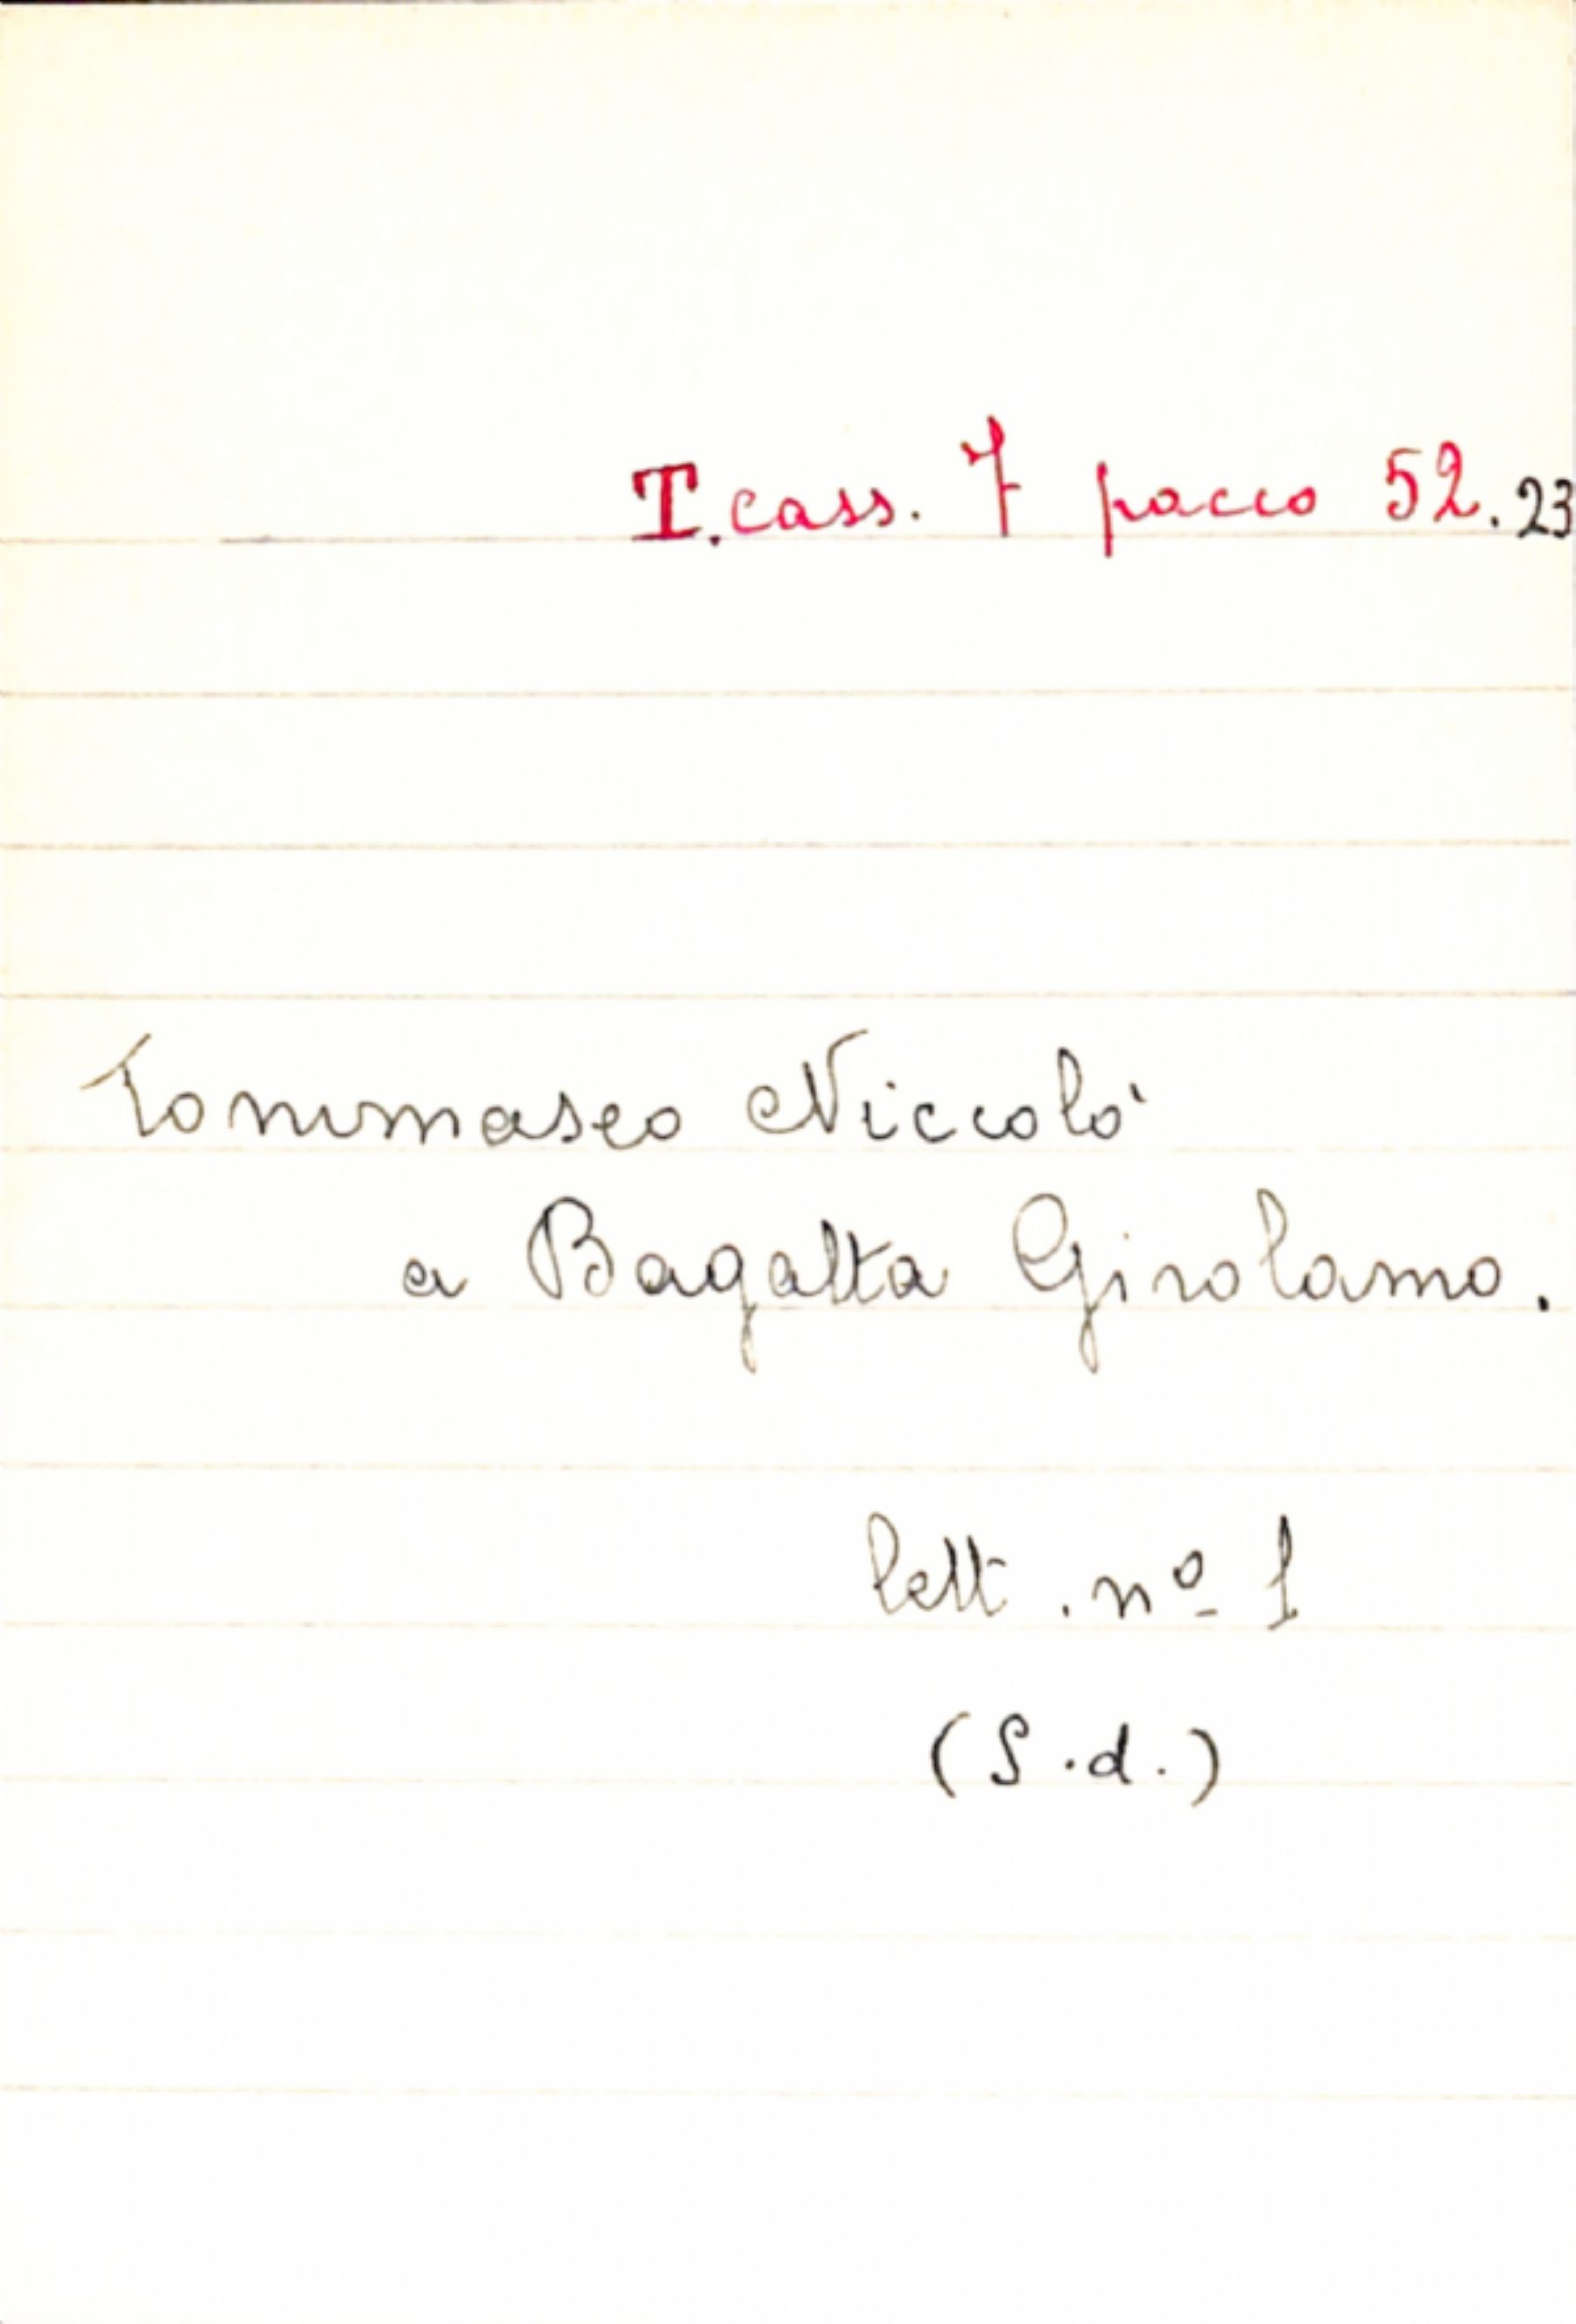 T. cass. 7 pacco 52.23
Tommaseo Niccolò
a Bagatta Girolamo.
lett. nº 1
(S.d.)